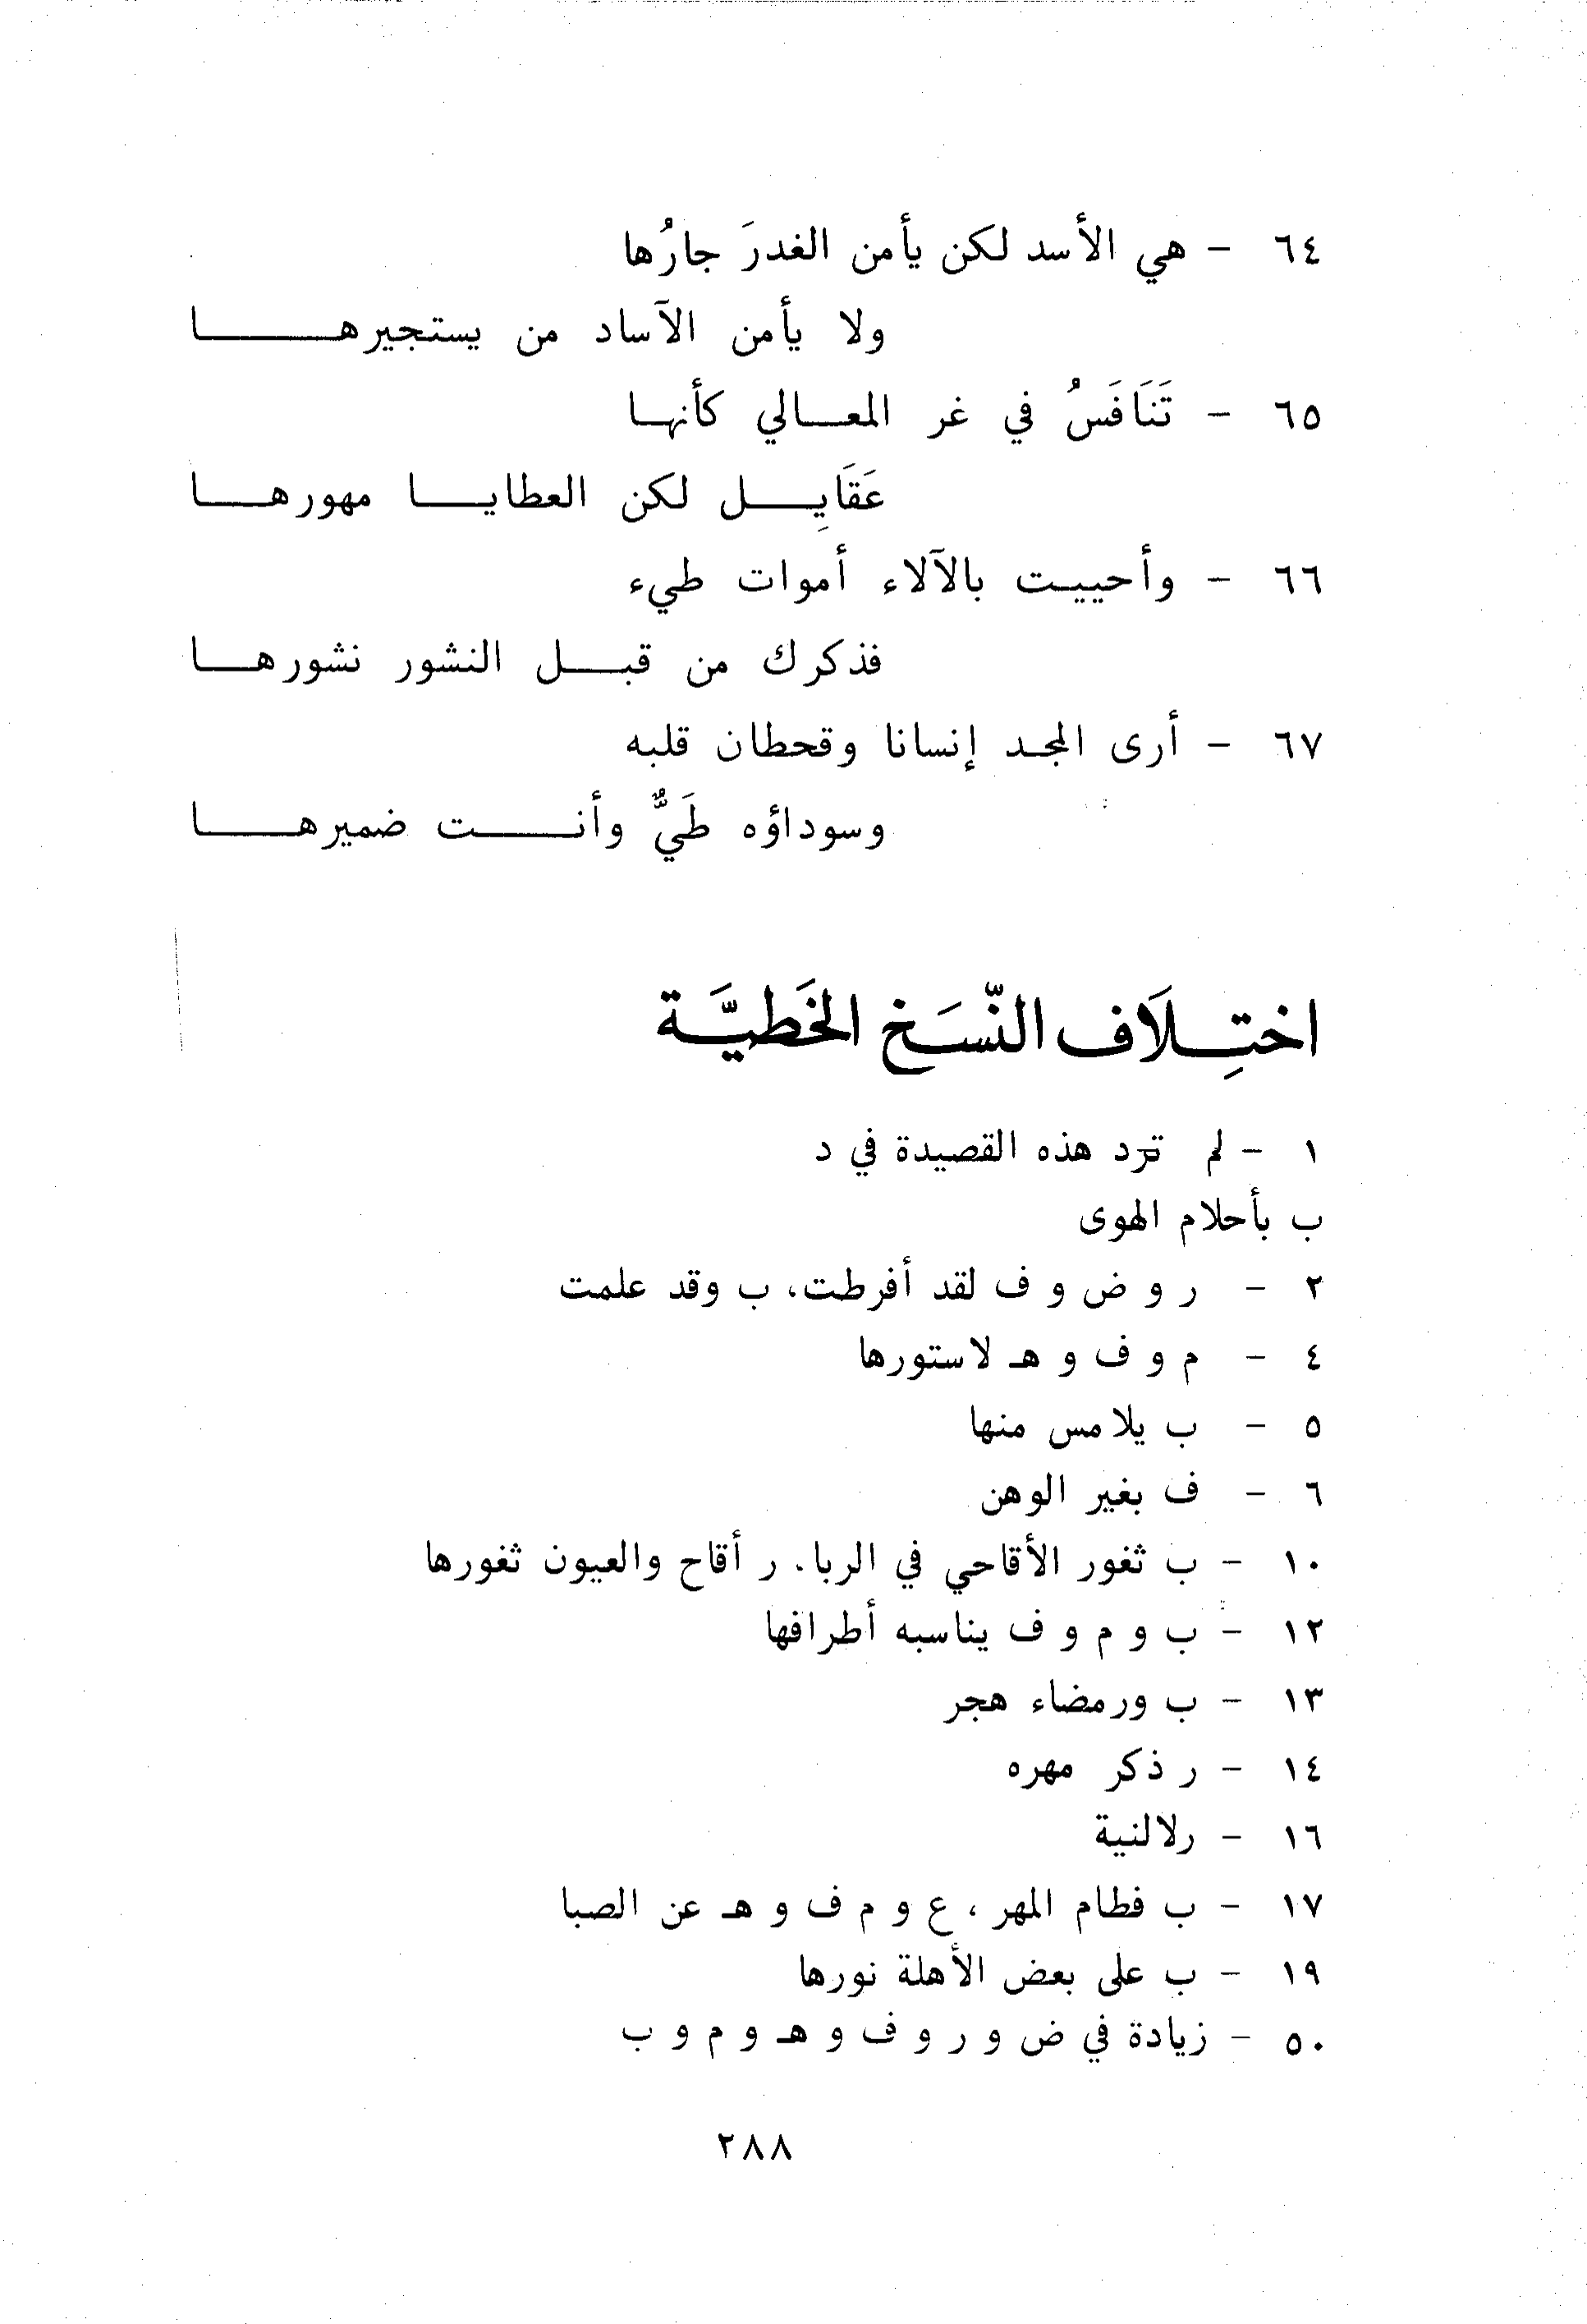 ٦٤ - هي الأسد لكن يأمن الغدرَ جارُها
ولا يأمن الآساد من يستجيرهـــا
٦٥ - تَنَافَسُ في غر المعـالي كأنهـا
عَقَايِـــل لكن العطايـــا مهورهـــا
٦٦ - وأحييـت بالآلاء أموات طيء
فذكرك من قبـــل النشور نشورهـــا
٦٧ - أرى المجـد إنسانا وقحطان قلبه
وسوداؤه طَيٌّ وأنـــت ضميرهـــا
اختِـلَاف النّسَـخ الخَطيَّـة
١ - لم ترد هذه القصيدة في د
ب بأحلام الهوى
٢ - ر و ض و ف لقد أفرطت، ب وقد علمت
٤ - م و ف و هـ لاستورها
٥ - ب يلامس منها
٦ - ف بغير الوهن
١٠ - ب ثغور الأقاحي في الربا. ر أقاح والعيون ثغورها
١٢ - ب و م و ف يناسبه أطرافها
١٣ - ب ورمضاء هجر
١٤ - ر ذكر مهره
١٦ - رلالنية
١٧ - ب فطام المهر ، ع و م ف و هـ عن الصبا
١٩ - ب على بعض الأهلة نورها
٥٠ - زيادة في ض و ر و ف و هـ و م و ب
٢٨٨